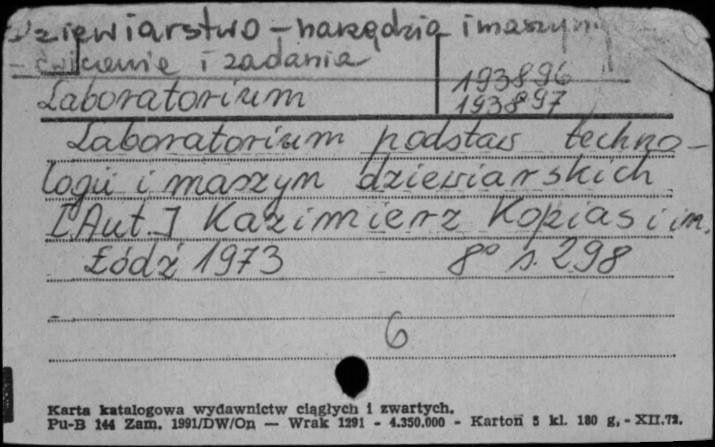 Dziewiarstwo - narzędzia i maszyny
- ćwiczenie i zadania
193896
Laboratorium
193897
Laboratorium podstaw techno-
logii i maszyn dziewiarskich
[Aut.] Kazimierz Kopias i in.
Łódź 1973 8° s. 298
6
Karta katalogowa wydawnictw ciągłych i zwartych.
Pu-B 144 Zam. 1991/DW/On — Wrak 1291 - 4.350.000 - Karton 5 kl. 180 g. - XII.72.